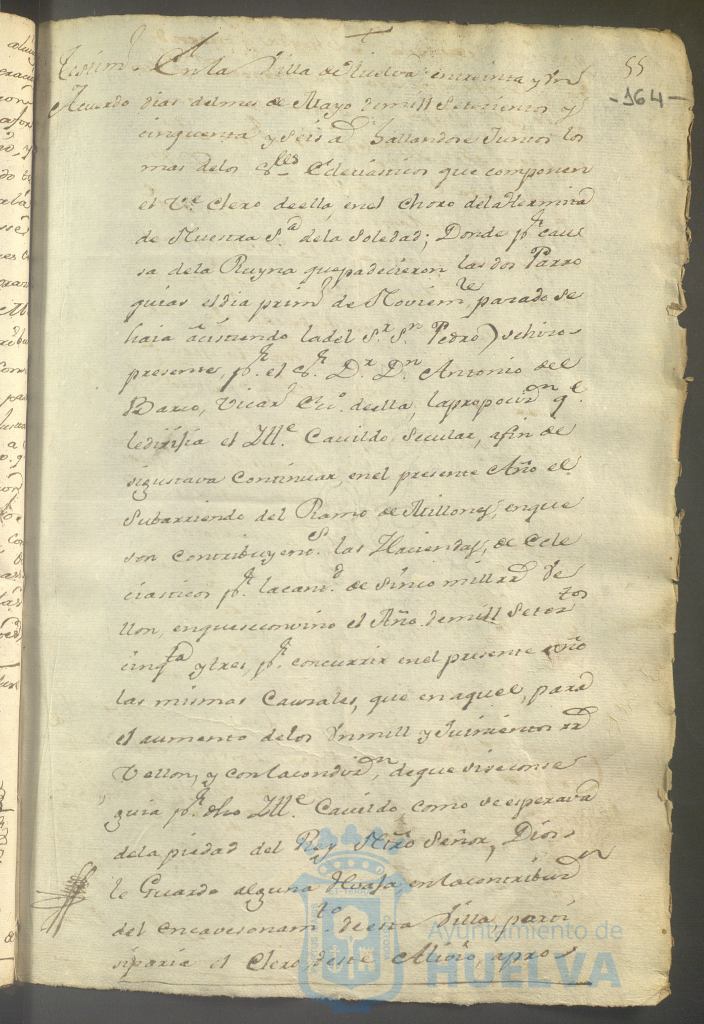 55
-164-
Testim.º En la Villa de Huelva en treinta y Un
Acuerdo dias del mes de Mayo de mill Setecientos y
cinquenta y Seis a.s hallandose Juntos los
mas de los S.res Eclesiasticos que componen
el V.e Clero de ella, en el Choro de la Hermita
de Nuestra S.a de la Soledad; Donde p.r cau
sa de la Ruyna que padecieron las dos Parro
quias el dia prim.º de Noviem.re pasado se
haia asistiendo la del S.r S.n Pedro) se hizo
presente, p.r el S.r D.r D.n Antonio del
Barco, Vicar.º Ecc.º de ella, la proposiz.n q.e
le dirijia el Ill.e Cavildo Secular, a fin de
si gustava Continuar, en el presente Año el
Subarriendo del Ramo de Millones, en que
son Contribuyent.s las Haciendas, de Ecle
ciasticos p.r la cant.d de Sinco mill r.s Ve
llon, en que se convino el Año de mill Setez.tos
cinq.ta y tres, p.r concurrir en el presente año
las mismas Causales, que en aquel, para
el aumento de los Un mill y Quinientos r.s
Vellon, y con la condiz.n, de que si se conse
guia p.r dho Ill.e Cavildo como se esperava
de la piedad del Rey Ntro Señor, Dios
le Guarde alguna Revaja en la contribuz.n
del encavesonam.to de esta Villa, parti
siparia el Clero, de este Alivio, a pro
Ayuntamiento de
HUELVA